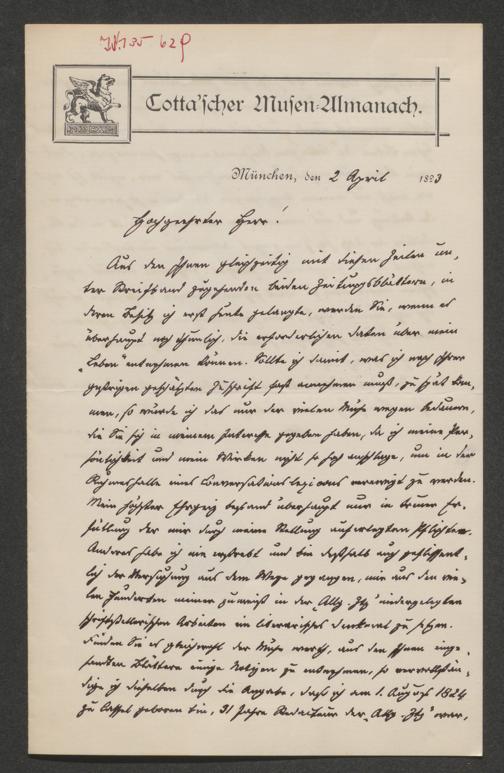 Cotta'scher Musen-Almanach.
München, den 2 April 1893
Hochgeehrter Herr!
Aus den Ihnen gleichzeitig mit diesen Zeilen un-
ter Kreuzband zugehenden beiden Zeitungsblättern, in
deren Besitz ich erst heute gelangte, werden Sie, wenn es
überhaupt noch thunlich, die erforderlichen Daten über mein
„Leben" entnehmen können. Sollte ich damit, was ich nach Ihrer
gestrigen geschätzten Zuschrift fast annehmen muß, zu spät kom-
men, so würde ich das nur der vielen Mühe wegen bedauern,
die Sie sich in meinem Interesse gegeben haben, da ich meine Per-
sönlichkeit und mein Wirken nicht so hoch anschlage, um in der
Ruhmeshalle eines Conversationslexicons verewigt zu werden.
Mein höchster Ehrgeiz bestand überhaupt nur in treuer Er-
füllung der mir durch meine Stellung auferlegten Pflichten.
Anderes habe ich nie erstrebt und bin deßhalb auch geflissent-
lich der Versuchung aus dem Wege gegangen, mir aus den vie-
len Hunderten meiner zumeist in der „Allg. Ztg" niedergelegten
schriftstellerischen Arbeiten ein literarisches Denkmal zu setzen.
Finden Sie es gleichwohl der Mühe werth, aus den Ihnen einge-
sandten Blättern einige Notizen zu entnehmen, so vervollstän-
dige ich dieselben durch die Angabe, daß ich am 1. August 1824
zu Cassel geboren bin, 31 Jahre Redacteur der „Allg. Ztg" war,